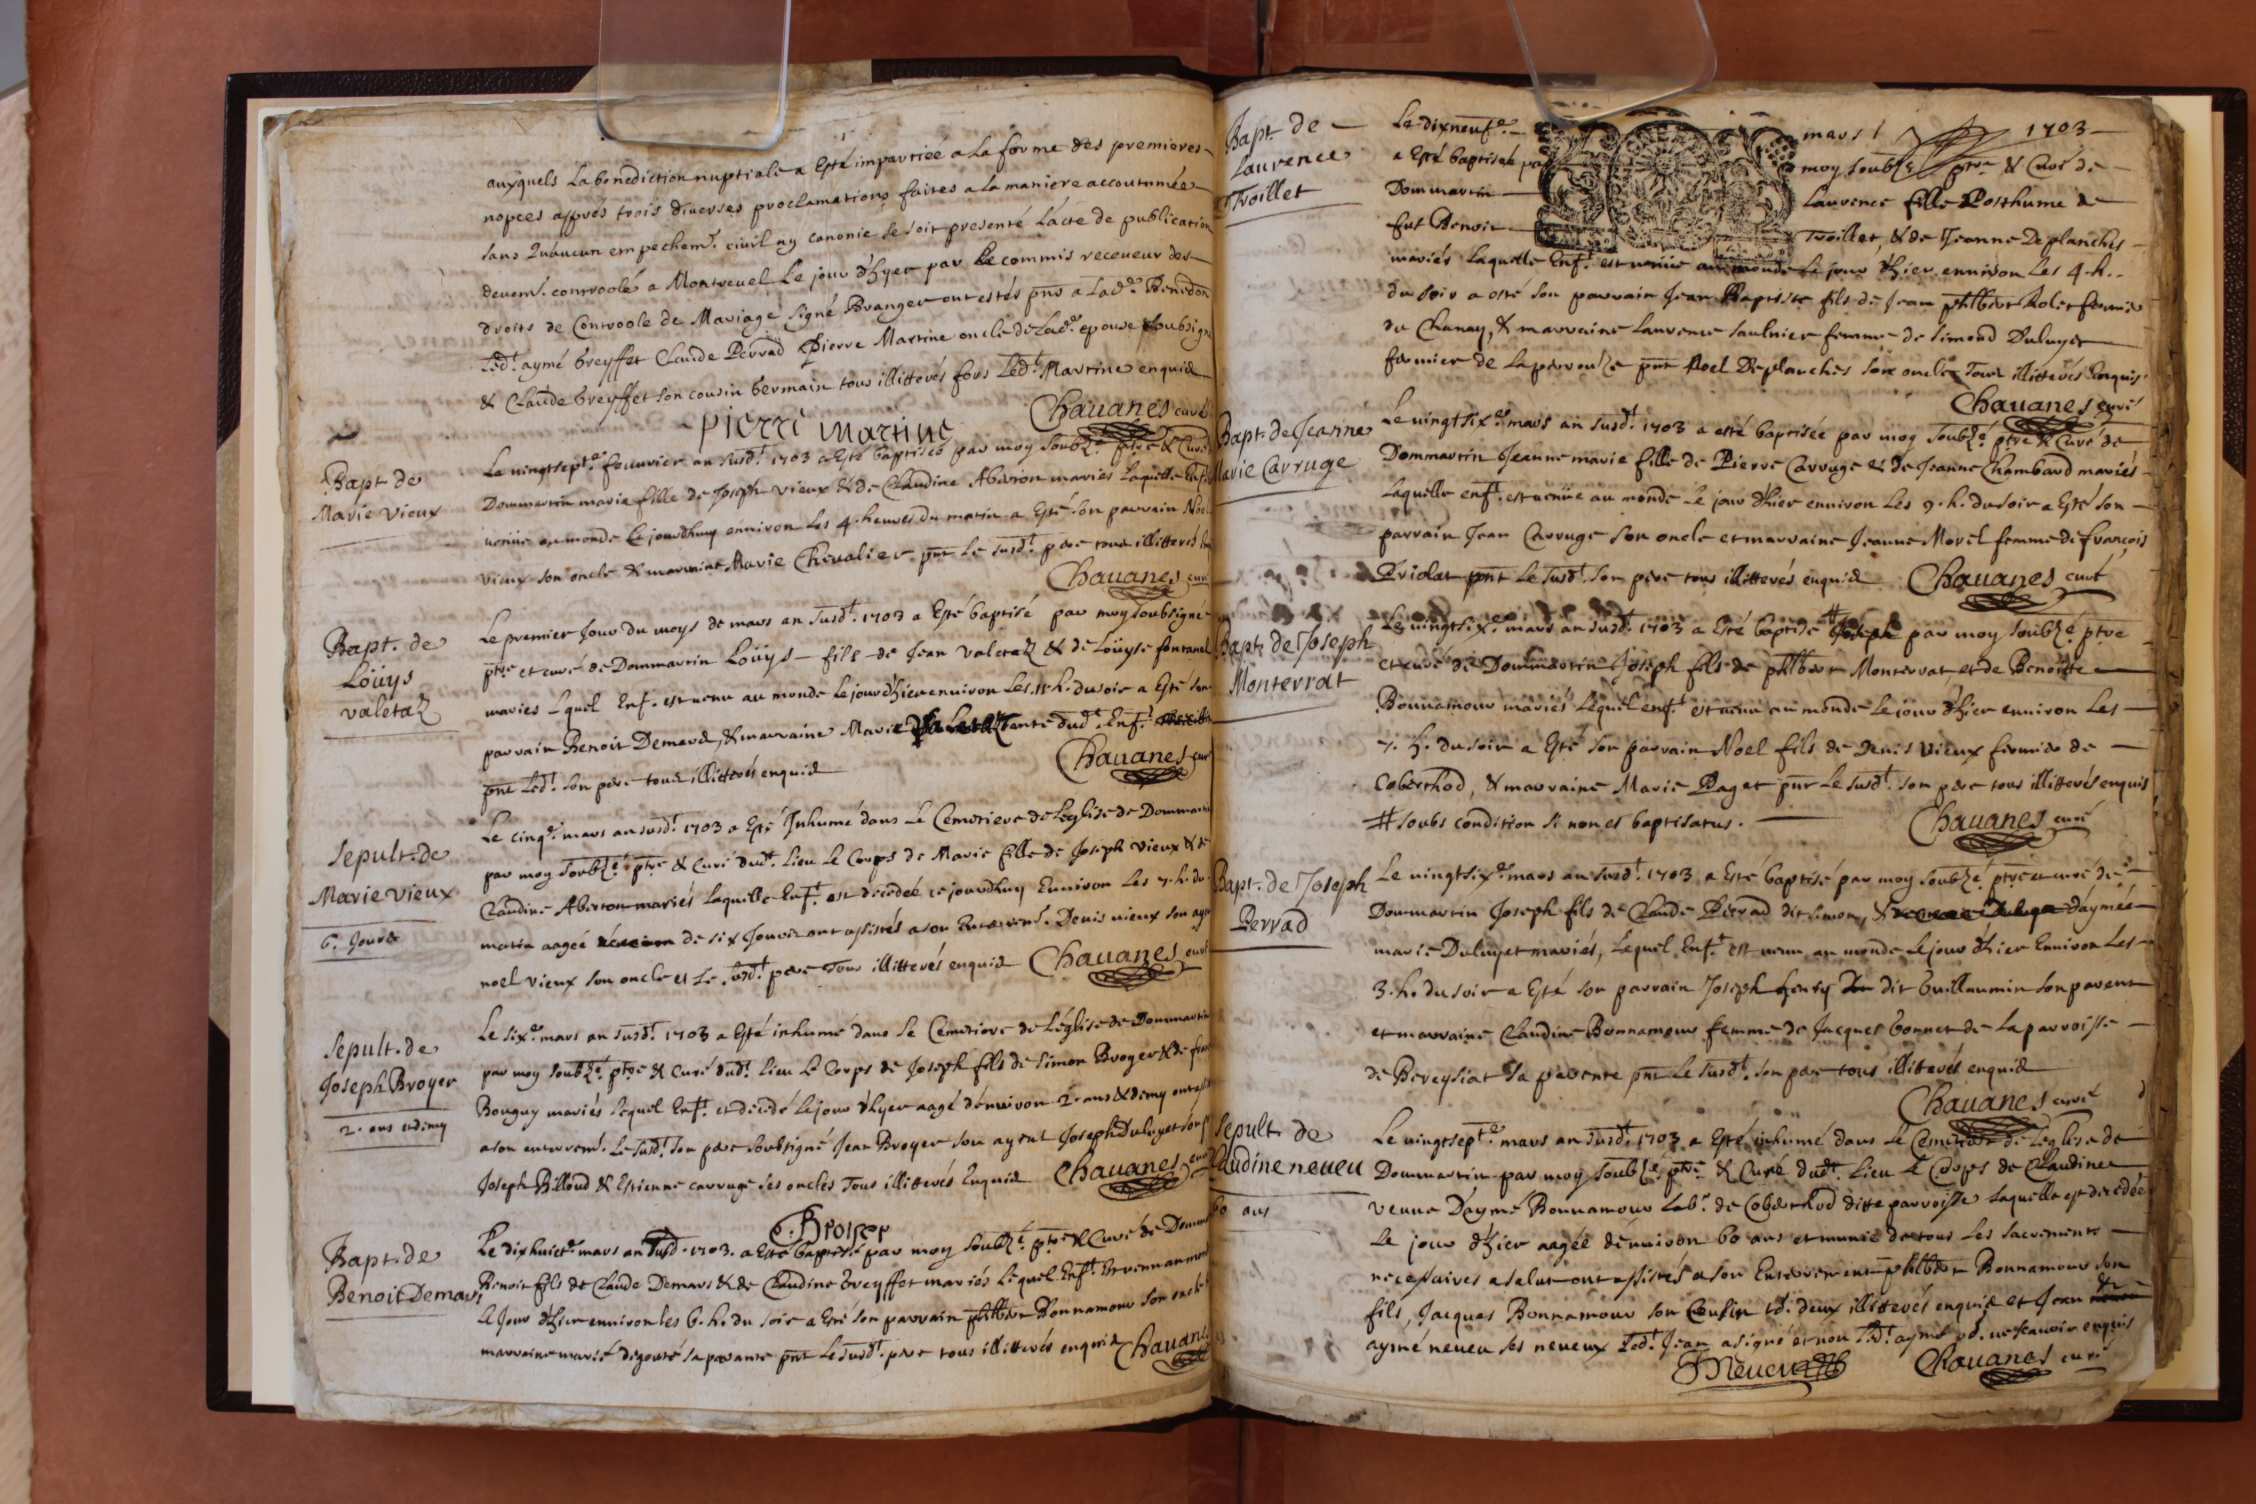 auxquels La benediction nuptiale a Esté impartiée a La forme des premieres
nopces apprés trois diverses proclamations faites a La maniere accoutumée
sans Quaucun empechemt. civil ny canonic se soit presenté L'acte de publication
devemt. controolé a Montrevel Le jour d'hyer par Le commis receveur des
droits de Controole de Mariage signé Branger ont estés pnts a Lade. Benedon
Ledt. aymé Greyffet Claude Perrad Pierre Martine oncle de Lade. epouse soubsigné
& Claude Greyffet son cousin Germain tous illitterés fors Ledt. Martine enquis
Chauanes curé
pierre martine
Bapt de
Marie Vieux
Le vingtsepte. fevurier an susdt. 1703 a Esté baptisée par moy soubzé. ptre & Curé
Dommartin marie fille de Joseph Vieux & de Claudine Abeton mariés Laquelle Enft.
venüe au monde Ce jourdhuy environ Les 4. heures du matin a Esté son parrain Noel
vieux son oncle & marraine Marie Chevalier pnt Le susdt. pere tous illitterés
Chauanes curé
Bapt. de
Loüys
valetaz
Le premier Jour du moys de mars an susdt. 1703 a Esté baptisé par moy soubsigné
ptre et curé de Dommartin Loüys fils de Jean Valetaz & de Loüyse fontanel
mariés Lquel Enf. est venu au monde Le jour d'hier environ Les 11 h. du soir a Esté son
parrain Benoit Demard, & marraine Marie tante dudt. Enft.
pnt Ledt. son pere tous illitterés enquis
Chauanes cur
Sepult. de
Marie Vieux
6. Jours
Le cinqe. mars an susdt. 1703 a Esté Inhumé dans Le Cemetiere de L'église de Dommartin
par moy soubzé. ptre & Curé dudt. Lieu Le Corps de Marie fille de Joseph Vieux & de
Claudine Abeton mariés Laquelle Enft. est decedée ce jourdhuy Environ Les 7. h. du
matin aagée de six Jours ont assistés a son Enteremt. Denis vieux son ayeul
noel vieux son oncle et Le susdt. pere Tous illitterés enquis
Chauanes curé
Sepult. de
Joseph Broyer
2. ans et demy
Le sixe. mars an susdt. 1703 a Esté inhumé dans Le Cemetiere de L'église de Dommartin
par moy soubzé. ptre & Curé dudt. Lieu Le Corps de Joseph fils de Simon Broyer & de
Bouguy mariés Lequel Enft. est decedé Le jour d'hyer aagé d'environ 2. ans & demy ont
a son enterremt. Le susdt. son pere soubsigné Jean Broyer son ayeul Joseph Duluyet
Joseph Billoud & Estienne Carruge ses oncles Tous illitterés Enquis
Chauanes curé
Broiyer
Bapt. de
Benoit Demars
Le dixhuicte. mars an susd. 1703. a Esté baptisé par moy soubzé. ptre & Curé de Domm
Benoit fils de Claude Demars & de Claudine Greyffet mariés Lequel Enft. est venu au monde
Le Jour d'hier environ Les 6. h. du soir a Esté son parrain philbert Bonnamour son oncle
marraine marie degouté sa parante pnt Le susdt. pere tous illitterés enquis
Chauanes
Bapt de
Laurence
Troillet
Le dixneufe. mars 1703
a Esté baptisée par moy soubzé ptre & Curé de
Dommartin Laurence fille Posthume de
fut Benoit Troillet, & de Jeanne Deplanches
mariés Laquelle Enft. est venüe au monde Le jour d'hier environ Les 4. h.
du soir a esté son parrain Jean Baptiste fils de Jean philbert Rolet fermier
du Chanay, & marraine Laurence Saulnier femme de Simond Duluyet
fermier de Laperrouze pnt Noel Deplanches son oncle Tous illitterés Enquis
Chauanes curé
Bapt. de Jeanne
Marie Carruge
Le vingtsixe. mars an susdt. 1703 a esté baptisée par moy soubzé. ptre & Curé de
Dommartin Jeanne marie fille de Pierre Carruge & de Jeanne Chambard mariés
Laquelle enft. est venüe au monde Le jour d'hier environ Les 9. h. du soir a Esté son
parrain Jean Carruge son oncle et marraine Jeanne Morel femme de françois
Priolat pnt Le susdt. son pere tous illitterés enquis
Chauanes curé
Bapt de Joseph
Monterrat
Le vingtsixe. mars an susdt. 1703 a Esté baptisé # par moy soubzé ptre
et curé de Dommartin Joseph fils de philbert Monterrat, et de Benoitte
Bonnamour mariés Lequel enft. est venu au monde Le jour d'hier environ Les
7. h. du soir a Esté son parrain Noel fils de Denis Vieux fermier de
Coberthod, & marraine Marie Paget pnt Le susdt. son pere tous illitterés enquis
# soubs condition si non es baptisatus.
Chauanes curé
Bapt. de Joseph
Perrad
Le vingtsixe. mars an susdt. 1703 a Esté baptisé par moy soubzé. ptre et curé de
Dommartin Joseph fils de Claude Perrad dit Simon, & d'aymée
marie Duluyet mariés, Lequel Enft. est venu au monde Le jour d'hier Environ Les
3. h. du soir a Esté son parrain Joseph henry dit Guillaumin son parent
et marraine Claudine Bonnamour femme de Jacques Gonnet de La parroisse
de Bereysiat sa parente pnt Le susdt. son pere tous illitterés enquis
Chauanes curé
Sepult. de
Claudine neveu
60 ans
Le vingtsepte. mars an susdt. 1703 a Esté inhumé dans Le Cemetiere de L'église de
Dommartin par moy soubzé. ptre. & Curé dudt. Lieu Le Corps de Claudine
veuve D'aymé Bonnamour Labr. de Coberthod ditte parroisse Laquelle est decedée
Le jour d'hier aagée d'environ 60 ans et munie de tous Les sacrements
necessaires a salut ont assistés a son Enterrement philbert Bonnamour son
fils, Jacques Bonnamour son Cousin Ld. deux illitterés enquis et Jean &
aymé neveu ses neveux Ledt. Jean a signé et non Ledt. aymé pr. ne scavoir enquis
Neveu
Chauanes curé